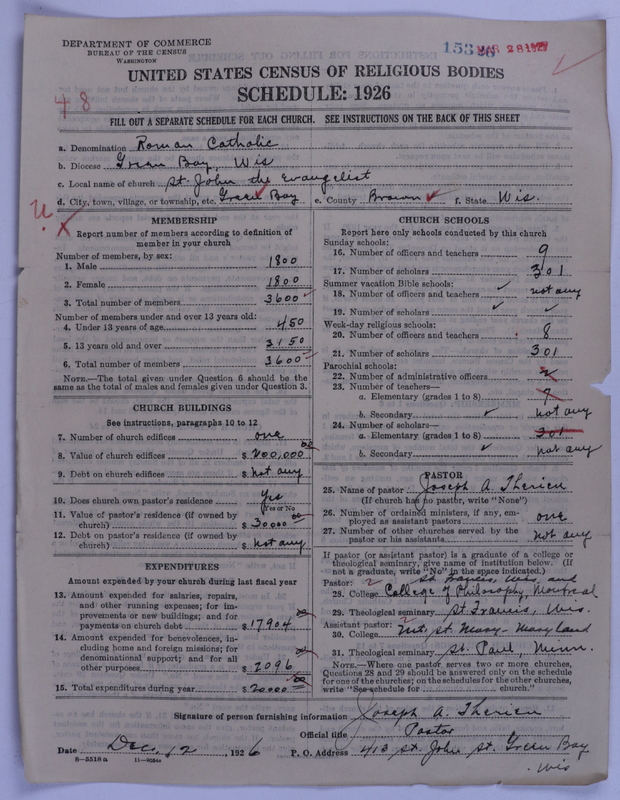 DEPARTMENT OF COMMERCE
BUREAU OF THE CENSUS
WASHINGTON
15326 MAR 28 1927
UNITED STATES CENSUS OF RELIGIOUS BODIES
SCHEDULE: 1926
48
FILL OUT A SEPARATE SCHEDULE FOR EACH CHURCH. SEE INSTRUCTIONS ON THE BACK OF THIS SHEET
a. Denomination Roman Catholic
b. Diocese Green Bay, Wis
c. Local name of church St. John the Evangelist
d. City, town, village, or township, etc. Green Bay e. County Brown f. State Wis.
MEMBERSHIP
Report number of members according to definition of
member in your church
Number of members, by sex:
1. Male 1800
2. Female 1800
3. Total number of members 3600
Number of members under and over 13 years old:
4. Under 13 years of age 450
5. 13 years old and over 3150
6. Total number of members 3600
NOTE.—The total given under Question 6 should be the
same as the total of males and females given under Question 3.
CHURCH BUILDINGS
See instructions, paragraphs 10 to 12
7. Number of church edifices one
8. Value of church edifices $ 200,000 00
9. Debt on church edifices $ not any
10. Does church own pastor's residence Yes
Yes or No
11. Value of pastor's residence (if owned by
church) $ 30000 00
12. Debt on pastor's residence (if owned by
church) $ not any
EXPENDITURES
Amount expended by your church during last fiscal year
13. Amount expended for salaries, repairs,
and other running expenses; for im-
provements or new buildings; and for
payments on church debt $ 17904
14. Amount expended for benevolences, in-
cluding home and foreign missions; for
denominational support; and for all
other purposes $ 2096
15. Total expenditures during year $ 20000
CHURCH SCHOOLS
Report here only schools conducted by this church
Sunday schools:
16. Number of officers and teachers 9
17. Number of scholars 301
Summer vacation Bible schools:
18. Number of officers and teachers not any
19. Number of scholars
Week-day religious schools:
20. Number of officers and teachers 8
21. Number of scholars 301
Parochial schools:
22. Number of administrative officers
23. Number of teachers—
a. Elementary (grades 1 to 8) 7
b. Secondary not any
24. Number of scholars—
a. Elementary (grades 1 to 8) 301
b. Secondary not any
PASTOR
25. Name of pastor Joseph A. Therien
(If church has no pastor, write "None")
26. Number of ordained ministers, if any, em-
ployed as assistant pastors one
27. Number of other churches served by the
pastor or his assistants not any
If pastor (or assistant pastor) is a graduate of a college or
theological seminary, give name of institution below. (If
not a graduate, write "No" in the space indicated.)
Pastor: 2 St Francis, Wis, and
28. College College of Philosophy, Montreal
29. Theological seminary St Francis, Wis.
Assistant pastor: 2
30. College Mt. St Mary - Maryland
31. Theological seminary St. Paul, Minn.
NOTE.—Where one pastor serves two or more churches,
Questions 28 and 29 should be answered only on the schedule
for one of the churches; on the schedules for the other churches,
write "See schedule for church."
Signature of person furnishing information Joseph A. Therien
Official title Pastor
Date Dec. 12, 1926 P. O. Address 413 St. John St. Green Bay
Wis
8—5518a 11—9054a